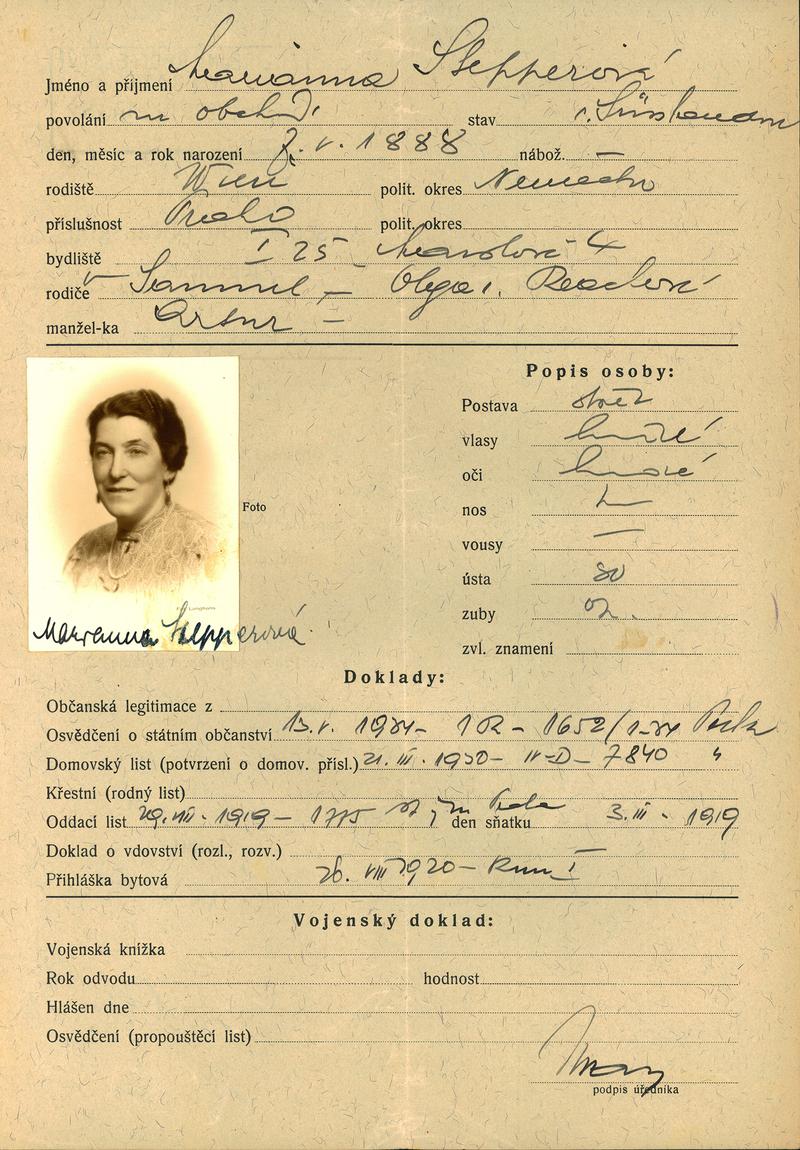 Jméno a příjmení Marianna Stepperová
povolání m obchod. stav r. Süssland
den, měsíc a rok narození 7. V. 1888 nábož. —
rodiště Wien polit. okres Německo
příslušnost Praha polit. okres
bydliště I 25 4
rodiče Samuel – Olga r. Reachová
manžel-ka Artur –
Popis osoby:
Postava střed
vlasy hnědé
oči hnědé
nos
vousy —
ústa
zuby
zvl. znamení
Foto
Marianna Stepperová
Doklady:
Občanská legitimace z
Osvědčení o státním občanství 13. V. 1652/
Domovský list (potvrzení o domov. přísl.) 21. III. 1930 – IV-D – 7840 "
Křestní (rodný list)
Oddací list 29. VII. 1919 – den sňatku 3. III. 1919
Doklad o vdovství (rozl., rozv.) —
Přihláška bytová 26. VIII 1920 – I
Vojenský doklad:
Vojenská knížka
Rok odvodu hodnost
Hlášen dne
Osvědčení (propouštěcí list)
podpis úředníka